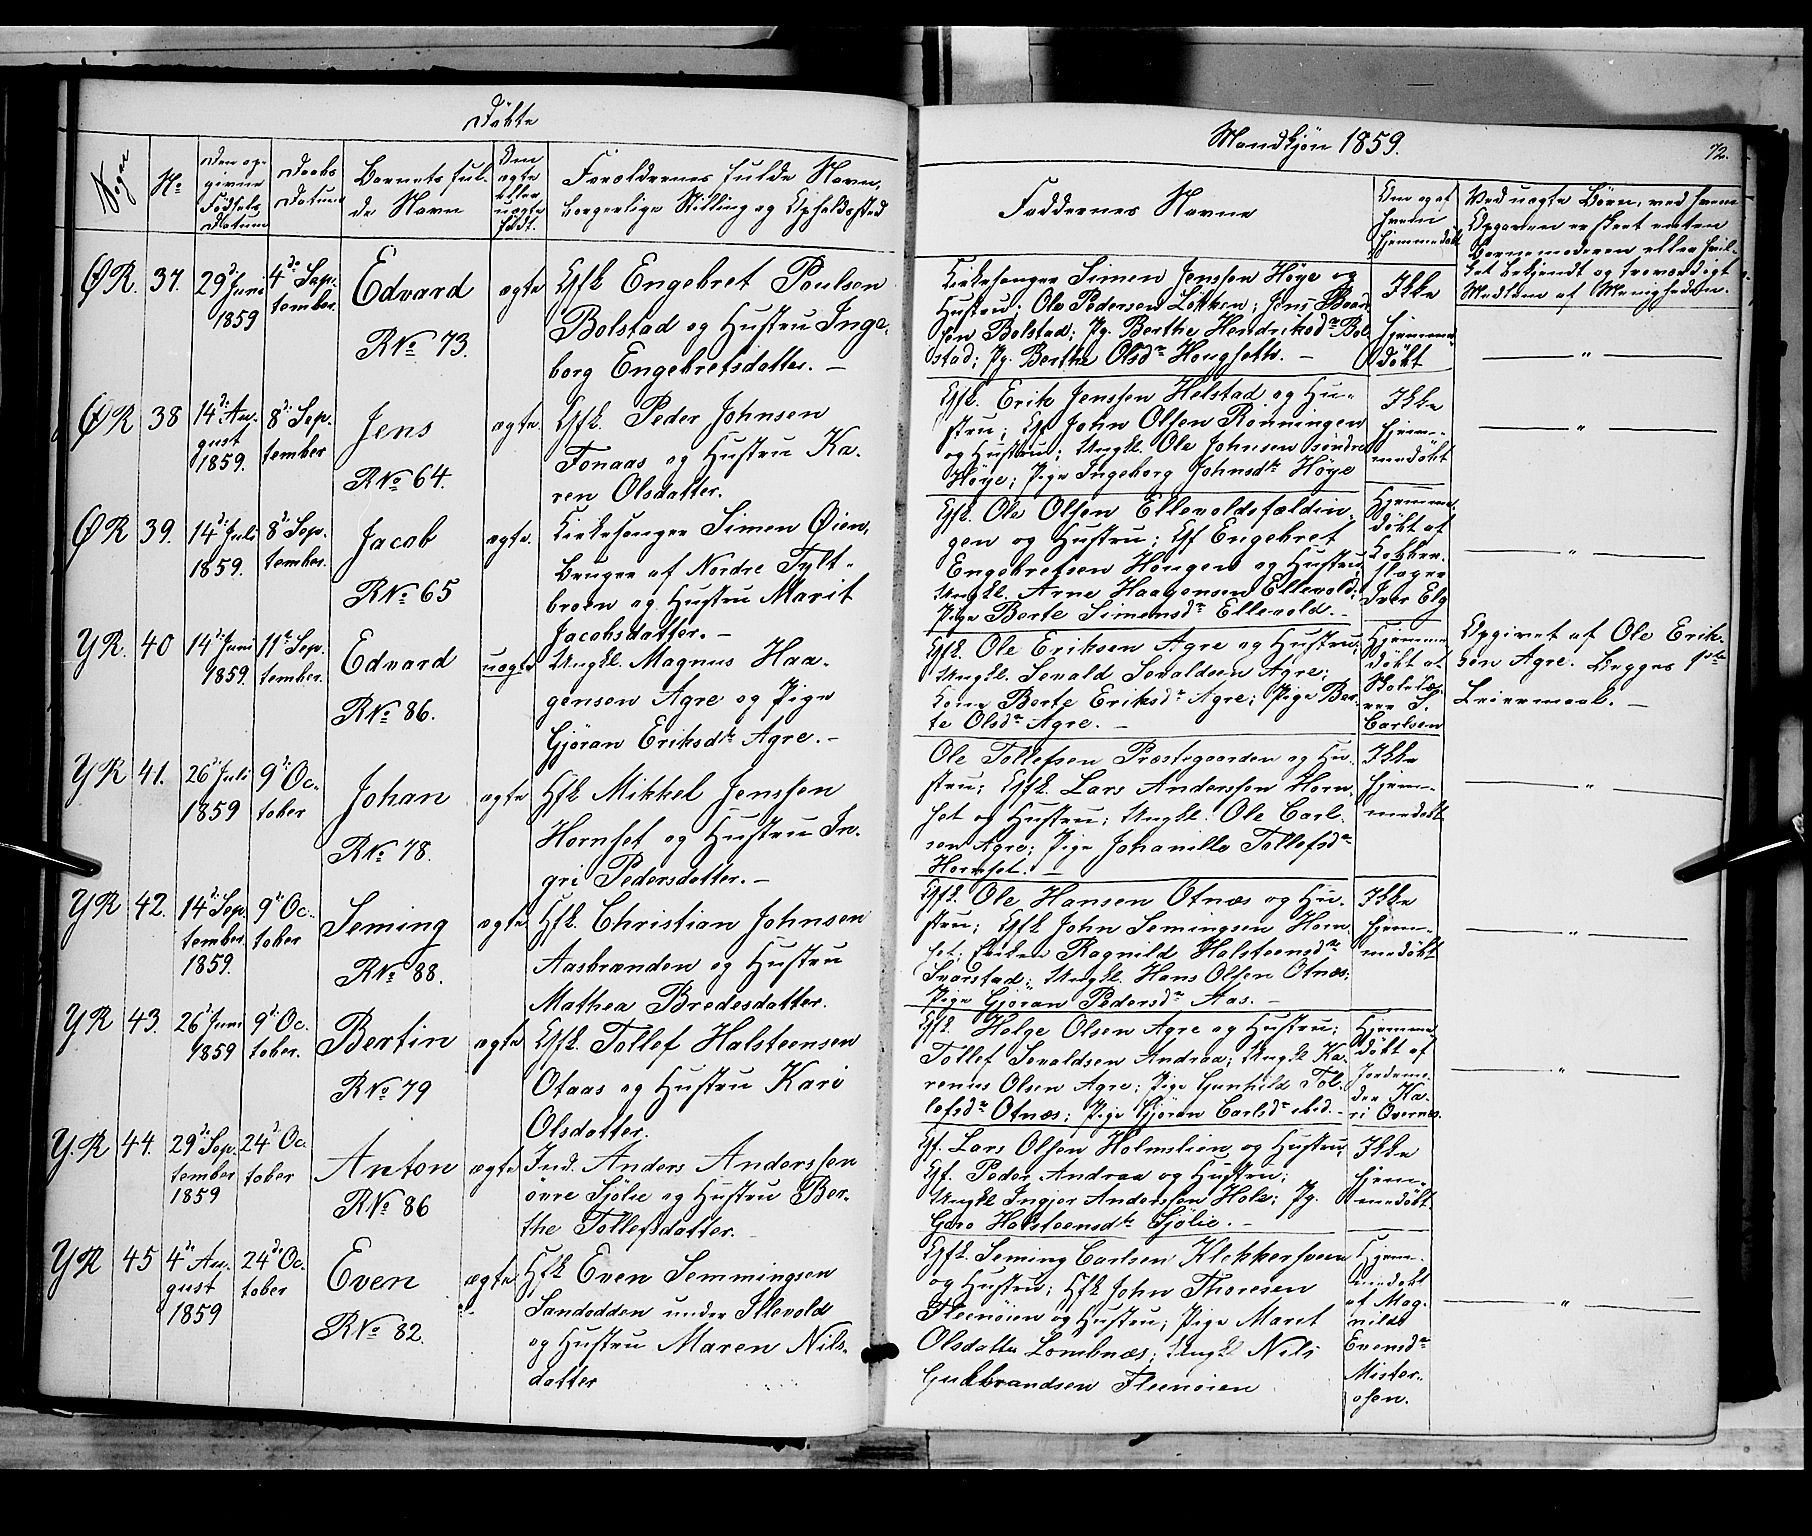 Døbte
Mandkjøn 1859.
72.
Sogn
No
Den op-
givne
Fødsels
Datum
Daabs
Datum
Barnets ful-
de Navn
Om
ægte
eller
uægte
født.
Forældrenes fulde Navn,
borgerlige Stilling og Opholdssted
Faddernes Navne
Om og af
hvem
hjemmedøbt
Ved uægte Børn, ved hvem
Opgaven er skeet enten
Barnemoderen eller hvil-
ket bekjendt og troværdigt
Medlem af Menigheden.
ØR. 37. 29de Juni
1859
4de Sep-
tember.
Edvard
R No 73.
ægte
Gfk Engebret Poulsen
Bolstad og Hustru Inge-
borg Engebretsdatter. —
Kirkesanger Simen Jenssen Høye og
Hustru; Ole Pedersen Løkken; Jens Baard
sen Bolstad; Pg. Berthe Hendriksdr Bol
stad; Pg. Berthe Olsdr Haugsette. —
Ikke
hjemme
døbt
— " —
ØR 38 14de Au-
gust
1859.
8de Sep-
tember
Jens
R No 64.
ægte.
Gfk. Peder Johnsen
Fonaas og Hustru Ka-
ren Olsdatter.
Gfk. Erik Jenssen Helstad og Hu-
stru; Gf John Olsen Rønningen
og Hustru; Ungkl. Ole Johnsen søndre
Høye; Pige Ingeborg Johnsdr Høye
Ikke
hjem-
medøbt
— " —
ØR 39. 14de Juli
1859.
8de Sep-
tember.
Jacob
R No 65
ægte.
Kirkesanger Simen Øien,
bruger af Nordre Tylt-
broen og Hustru Marit
Jacobsdatter. —
Gfk. Ole Olsen Ellevoldsfaldin-
gen og Hustru; Gf Engebret
Engebretsen Haugen og Hustru;
Ungkl. Arne Haagensen Ellevold;
Pige Berte Simensdr Ellevold. —
Hjemme
døbt af
Kobber-
slager
Iver Elg
— " —
YR. 40 14de Juni
1859.
11te Sep-
tember.
Edvard
R No 86.
uægte
Ungkl. Magnus Haa-
gensen Agre og Pige
Gjøran Eriksdtr Agre. —
Gfk. Ole Eriksen Agre og Hustru;
Ungkl. Sevald Sevaldsen Agre;
Kone Berte Eriksdr Agre; Pige Ber-
te Olsdr Agre. —
Hjemme
døbt af
Skolelæ-
rer S.
Carlsen
Opgivet af Ole Erik-
sen Agre. Begges 1ste
Leiermaal. —
YR 41. 26de Juli
1859
9de Oc-
tober
Johan
R No 78.
ægte
Hfk Mikkel Jenssen
Hornset og Hustru In-
gri Pedersdatter. —
Ole Tollefsen Præstegaarden og Hu-
stru; Gfk. Lars Anderssen Horn-
set og Hustru; Ungkl. Ole Carl-
sen Agre; Pige Johanille Tollefsdr
Hornset. —
Ikke
hjem-
medøbt
— " —
YR 42. 14de Sep
tember
1859.
9de Oc-
tober
Seming
R No 88.
ægte
Hfk. Christian Johnsen
Aasbrænden og Hustru
Mathea Bredesdatter.
Gfk. Ole Hansen Otnæs og Hu-
stru; Gfk John Semingsen Horn-
set; Enken Ragnild Halsteensdr
Svarstad; Ungkl. Hans Olsen Otnæs;
Pige Gjøran Pedersdr Aas. —
Ikke
hjem-
medøbt
— " —
YR 43. 26de Juni
1859
9de Oc-
tober.
Bertin
R No 79
ægte
Gfk. Tollef Halsteensen
Otaas og Hustru Kari
Olsdatter.
Gfk. Helge Olsen Agre og Hustru;
Tollef Sevaldsen Andraa; Ungkl Ka-
renius Olsen Agre; Pige Gunhild Tol-
lefsdr Otnæs; Pige Gjøran Carlsdr ibid. —
Hjemme
døbt af
Jordemo-
der Ka-
ri Øvernæs.
— " —
Y.R 44. 29de Sep
tember
1859
24de Oc
tober
Anton
R No 86
ægte
Ind. Anders Anderssen
øvre Sjølie og Hustru Ber-
the Tollefsdatter.
Gf. Lars Olsen Holmslien og Hustru;
Gf. Peder Andraa og Hustru;
Ungkl Ingjer Anderssen Hole; Pg.
Goro Halsteensdtr Sjølie. —
Ikke
hjem-
medøbt
YR 45 4de Au-
gust
1859
24de Oc-
tober
Even
R No 82.
ægte
Hfk Even Semmingsen
Sandodden under Illevold
og Hustru Maren Nils-
datter
Gfk. Seming Carlsen Klekkersveen
og Hustru; Hfk John Thoresen
Fleenøien og Hustru; Pige Maret
Olsdatter Lombnæs; Ungkl Nils
Gudbrandsen Fleenøien
Hjem-
medøbt
af Mag-
nilde
Evensdr
Mister-
osen.
— " —